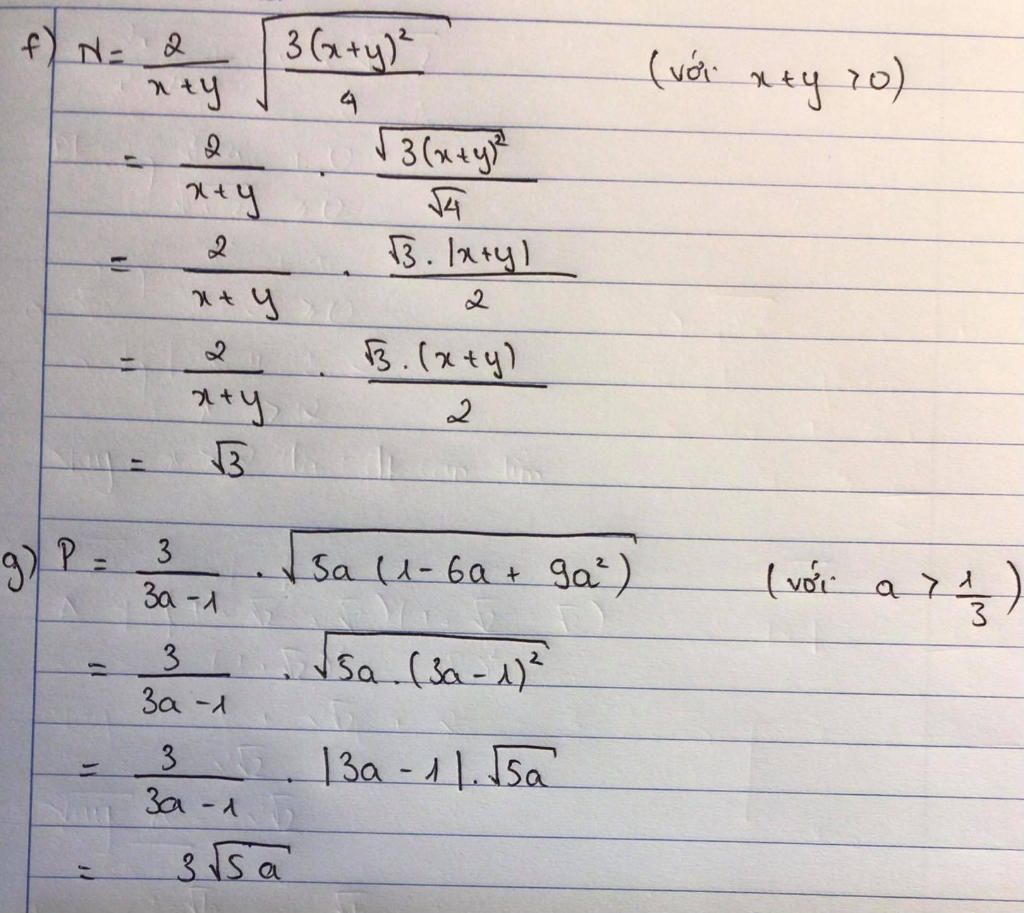 f) N = \frac{2}{x+y} \sqrt{\frac{3(x+y)^2}{4}} (với x+y > 0)
= \frac{2}{x+y} . \frac{\sqrt{3(x+y)^2}}{\sqrt{4}}
= \frac{2}{x+y} . \frac{\sqrt{3} . |x+y|}{2}
= \frac{2}{x+y} . \frac{\sqrt{3} . (x+y)}{2}
= \sqrt{3}
g) P = \frac{3}{3a-1} . \sqrt{5a (1-6a+9a^2)} (với a > \frac{1}{3})
= \frac{3}{3a-1} . \sqrt{5a . (3a-1)^2}
= \frac{3}{3a-1} . |3a-1| . \sqrt{5a}
= 3\sqrt{5a}